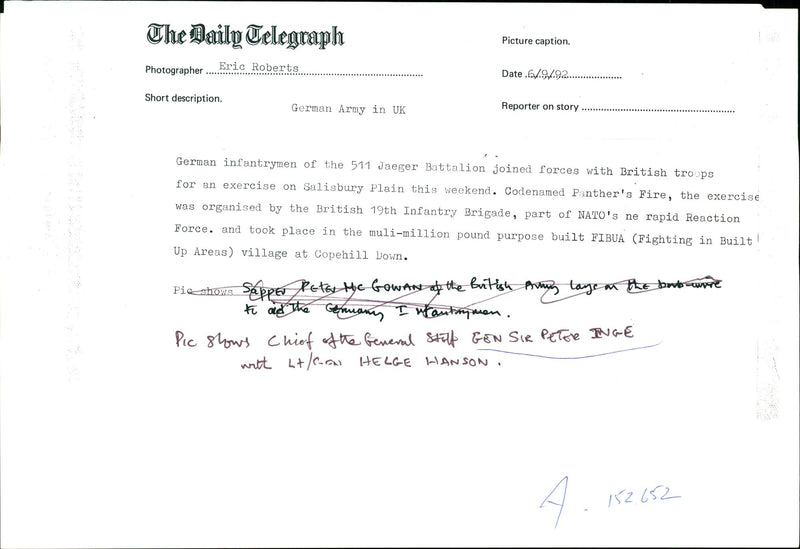 The Daily Telegraph
Picture caption.
Photographer Eric Roberts
Date 6/9/92
Short description.
German Army in UK
Reporter on story
German infantrymen of the 511 Jaeger Battalion joined forces with British troops
for an exercise on Salisbury Plain this weekend. Codenamed Panther's Fire, the exercise
was organised by the British 19th Infantry Brigade, part of NATO's ne rapid Reaction
Force. and took place in the muli-million pound purpose built FIBUA (Fighting in Built
Up Areas) village at Copehill Down.
Pic shows Sapper PETER MC GOWAN of the British Army lays on the barb-wire
to aid the Germany Infantrymen.
Pic shows Chief of the General Staff GEN SIR PETER INGE
with Lt/Col HELGE HANSON.
A. 152652